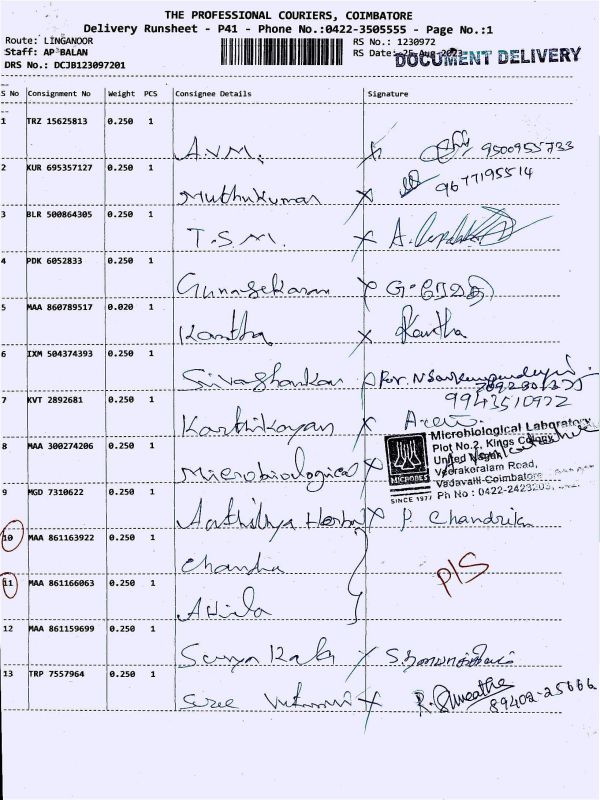 THE PROFESSIONAL COURIERS, COIMBATORE
Delivery Runsheet - P41 - Phone No.:0422-3505555 - Page No.:1
Route: LINGANOOR
RS No.: 1230972
Staff: AP BALAN
RS Date: 25-Aug-2023
DOCUMENT DELIVERY
DRS No.: DCJB123097201
S No Consignment No Weight PCS Consignee Details Signature
1 TRZ 15625813 0.250 1 A.V.M. 9500955733
2 KUR 695357127 0.250 1 Muthukumar 9677195514
3 BLR 500864305 0.250 1 T.S.M. A.
4 PDK 6052833 0.250 1 Gunasekaran G.
5 MAA 860789517 0.020 1 Kantha Kantha
6 IXM 504374393 0.250 1 Sivashankar For.
7 KVT 2892681 0.250 1 Karthikayan 9943510972
8 MAA 300274206 0.250 1 Microbiological
Microbiological Laboratory
Plot No.2, Kings Colony
United Nagar
Veerakeralam Road,
Vadavalli-Coimbatore
Ph No : 0422-2423203,
MICROBES
SINCE 1977
9 MGD 7310622 0.250 1 Aathithya Herbal P. Chandrika
10 MAA 861163922 0.250 1 Chandra
11 MAA 861166063 0.250 1 P/S
12 MAA 861159699 0.250 1 Surya
13 TRP 7557964 0.250 1 Sree R. Sweatha
89402-25666